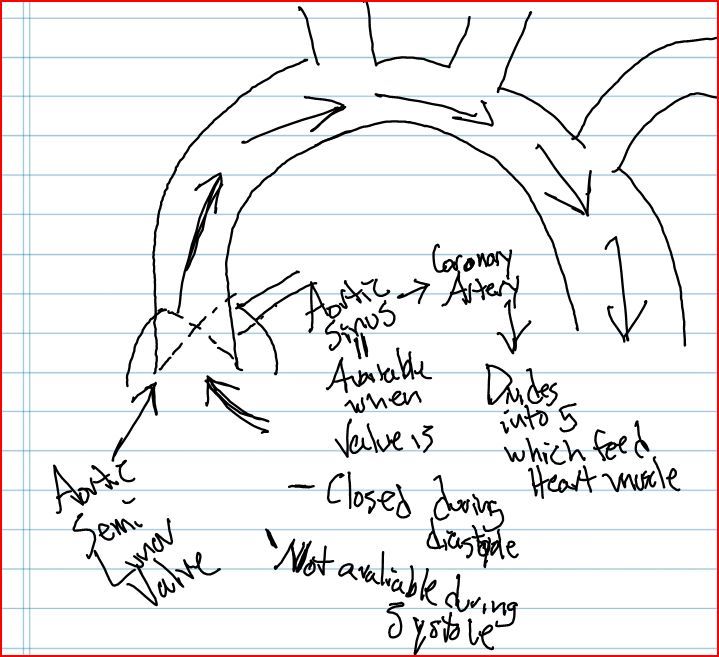 Coronary
Artery
Aortic
Sinus
Available
when
Valve is
- Closed during
diastole
Not avaliable during
Systole
Divides
into 5
which feed
Heart muscle
Aortic
Semi
Lunar
Valve